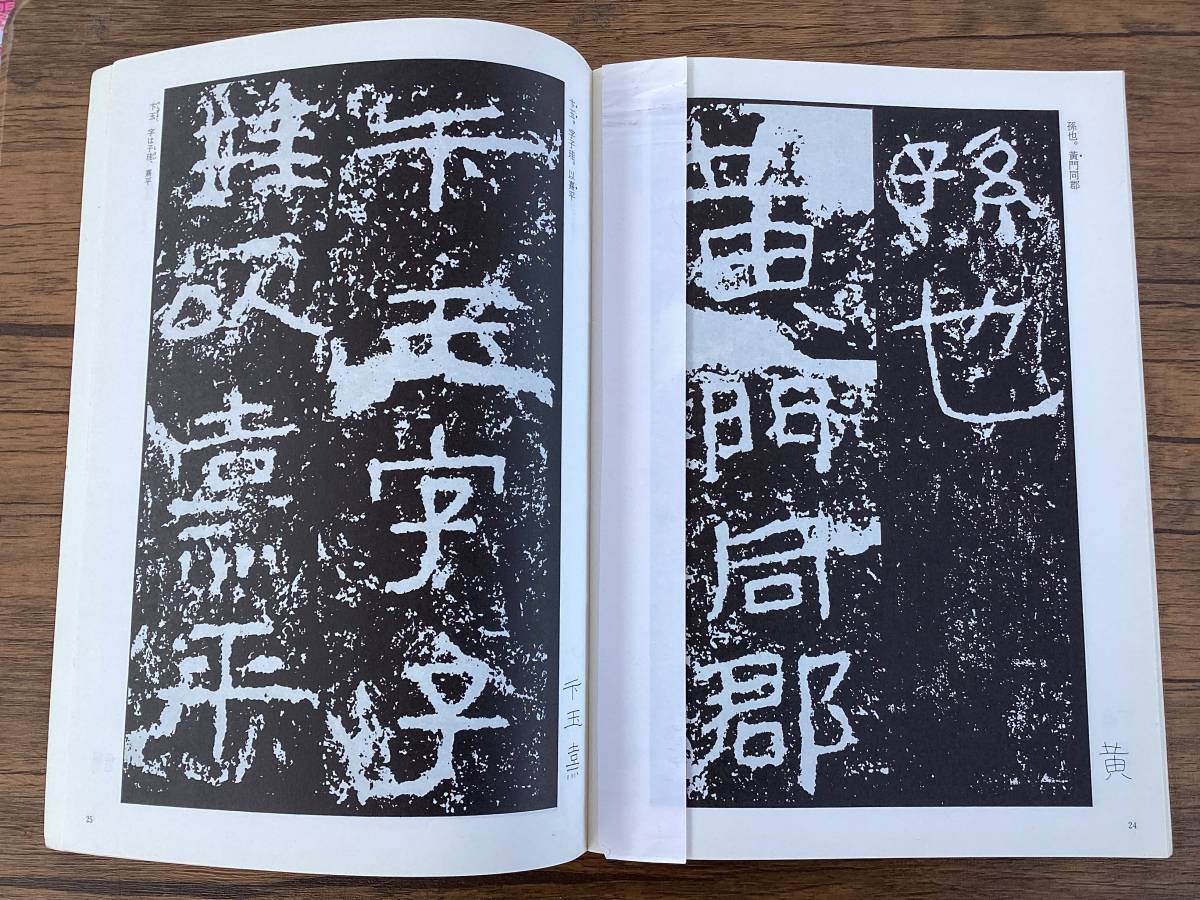 孫也。黃門同郡
孫也
黃門同郡
黄
24
卞玉。字子珪。以熹平
卞玉字子
珪以熹平
卞玉熹
卞玉、字は子珪、熹平
25